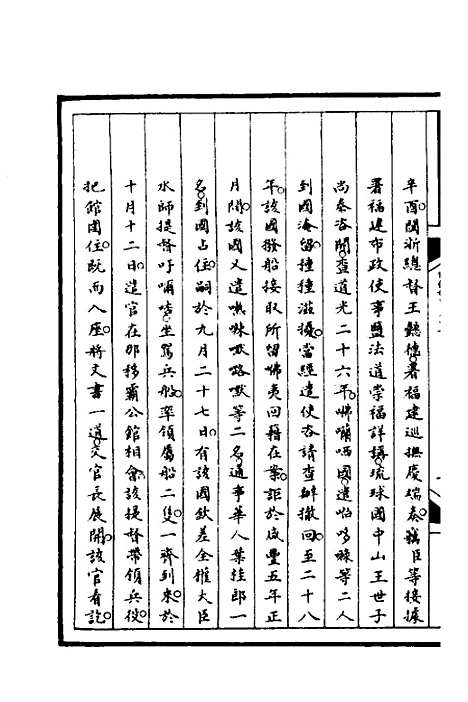 辛酉閩浙總督王懿德署福建巡撫慶瑞奏竊臣等接據
署福建布政使事鹽法道崇福詳請琉球國中山王世子
尚泰咨開查道光二十六年咈囒哂國遣等二人
到國淹留種種滋擾當經遣使咨請查辦撤回至二十八
年該國撥船接取所留咈夷回籍在案詎於咸豐五年正
月間該國又遣等二名通事華人葉桂郎一
名到國占住嗣於九月二十七日有該國欽差全權大臣
水師提督吁坐駕兵船率領屬船二隻一齊到來於
十月十二日遣官在那移霸公館相會該提督帶領兵役
把館圍住既而入座將文書一道交官長展開該官看訖